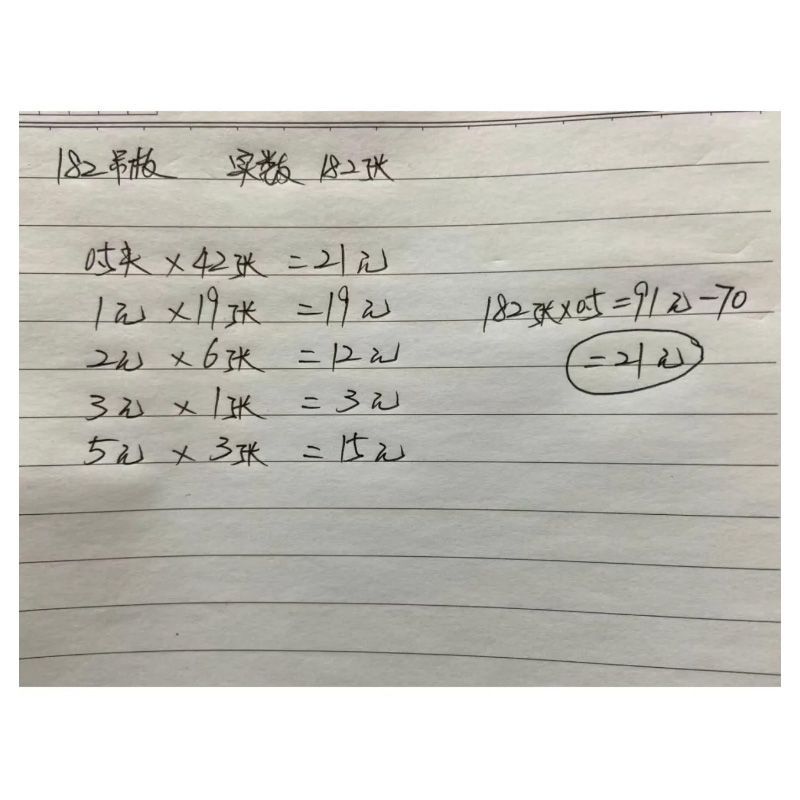 182吊板 实数 182张
05米 × 42张 = 21元
1元 × 19张 = 19元
2元 × 6张 = 12元
3元 × 1张 = 3元
5元 × 3张 = 15元
182张×05=91元-70
=21元